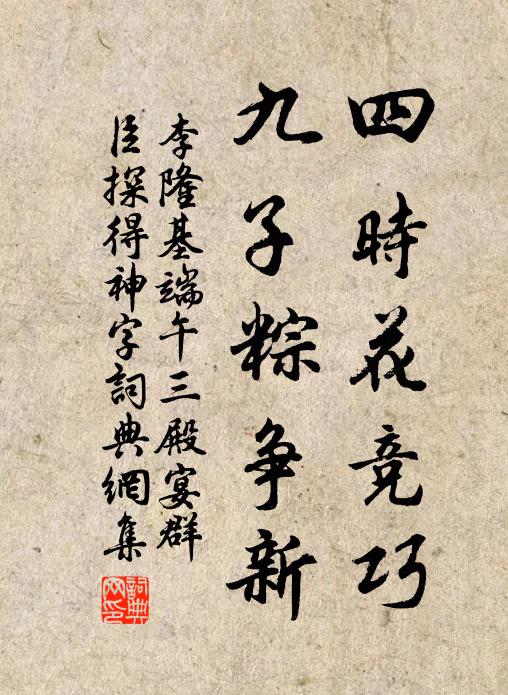 四時花竞巧
九子粽争新
李隆基端午三殿宴群
臣探得神字詞典網集
詞典網印